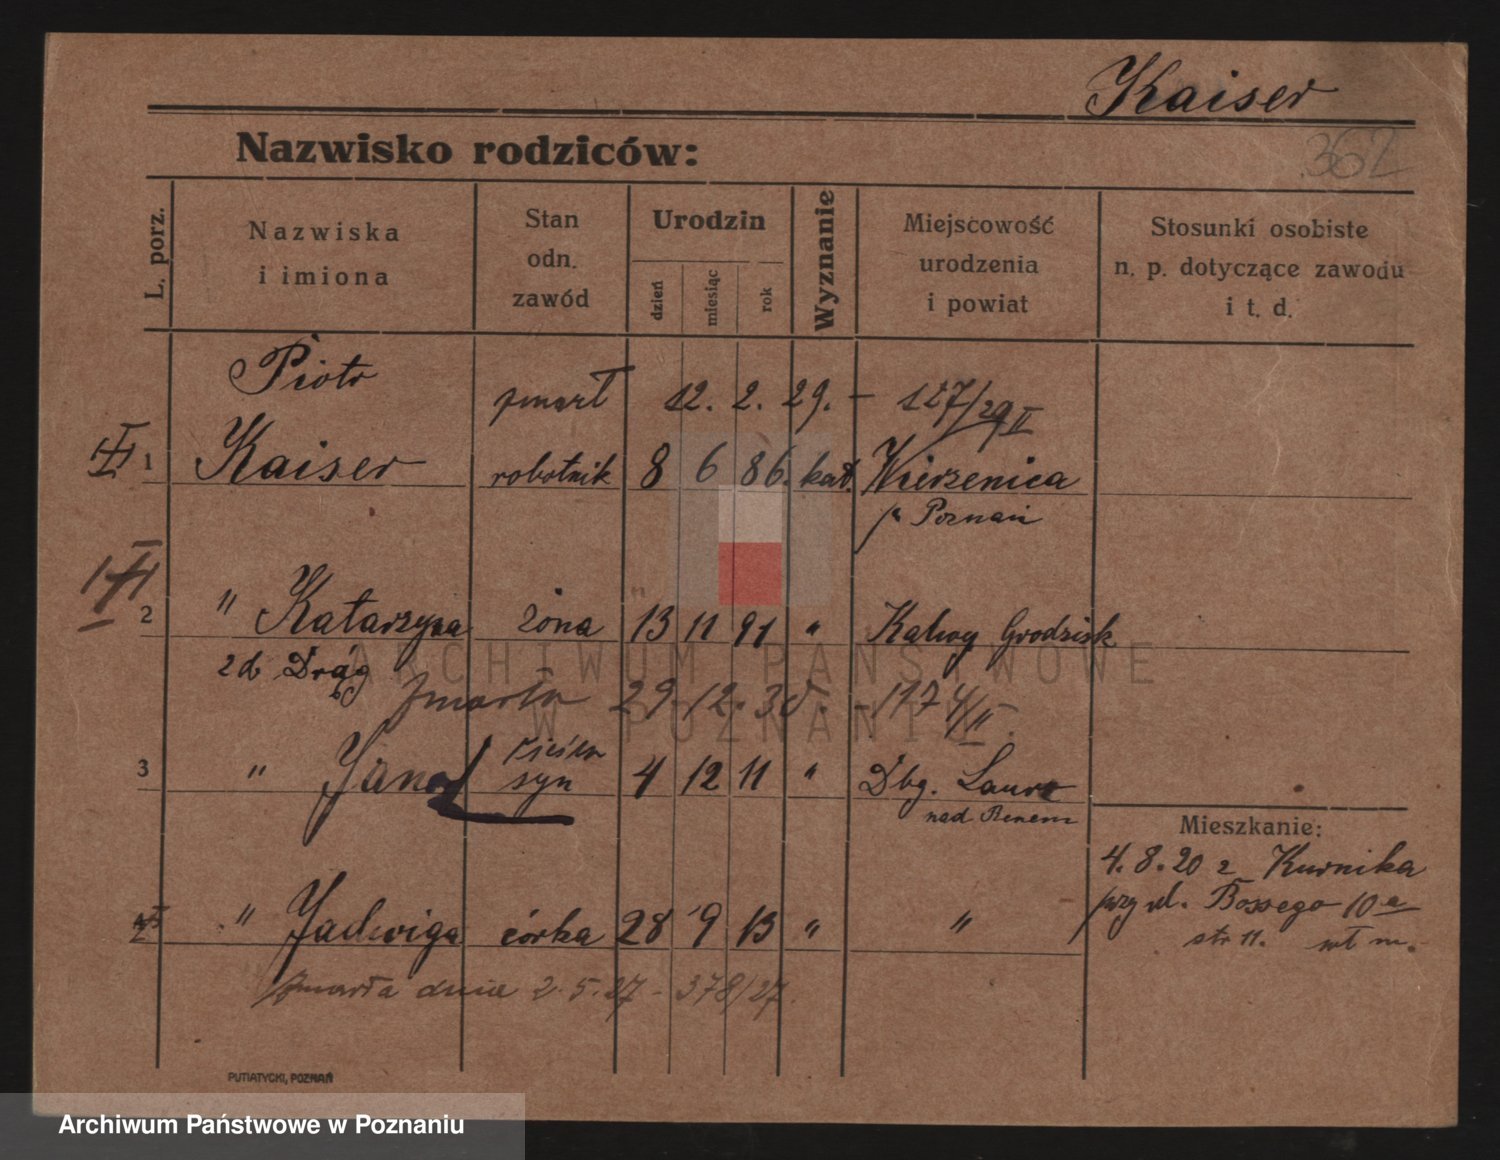 Kaiser
362
Nazwisko rodziców:
L. porz.
Nazwiska
i imiona
Stan
odn.
zawód
Urodzin
dzień
miesiąc
rok
Wyznanie
Miejscowość
urodzenia
i powiat
Stosunki osobiste
n. p. dotyczące zawodu
i t. d.
Piotr
zmarł 12. 2. 29. – 127/29 II
1 Kaiser robotnik 8 6 86. kat. Wierzenica
p. Poznań
2 " Katarzyna żona 13 11 91 " Kalwy Grodzisk
zd. Drąg
zmarła 29. 12. 30. – 1174/II
cieśla
3 " Jan syn 4 12 11 " Dbg. Laure
nad Renem
Mieszkanie:
4. 8. 20 z Kurnika
przy ul. Bossego 10a
str 11. wł m.
" Jadwiga córka 28 9 13 " "
zmarła dnia 2. 5. 27 – 378/27.
PUTIATYCKI, POZNAŃ
ARCHIWUM PAŃSTWOWE
W POZNANIU
Archiwum Państwowe w Poznaniu